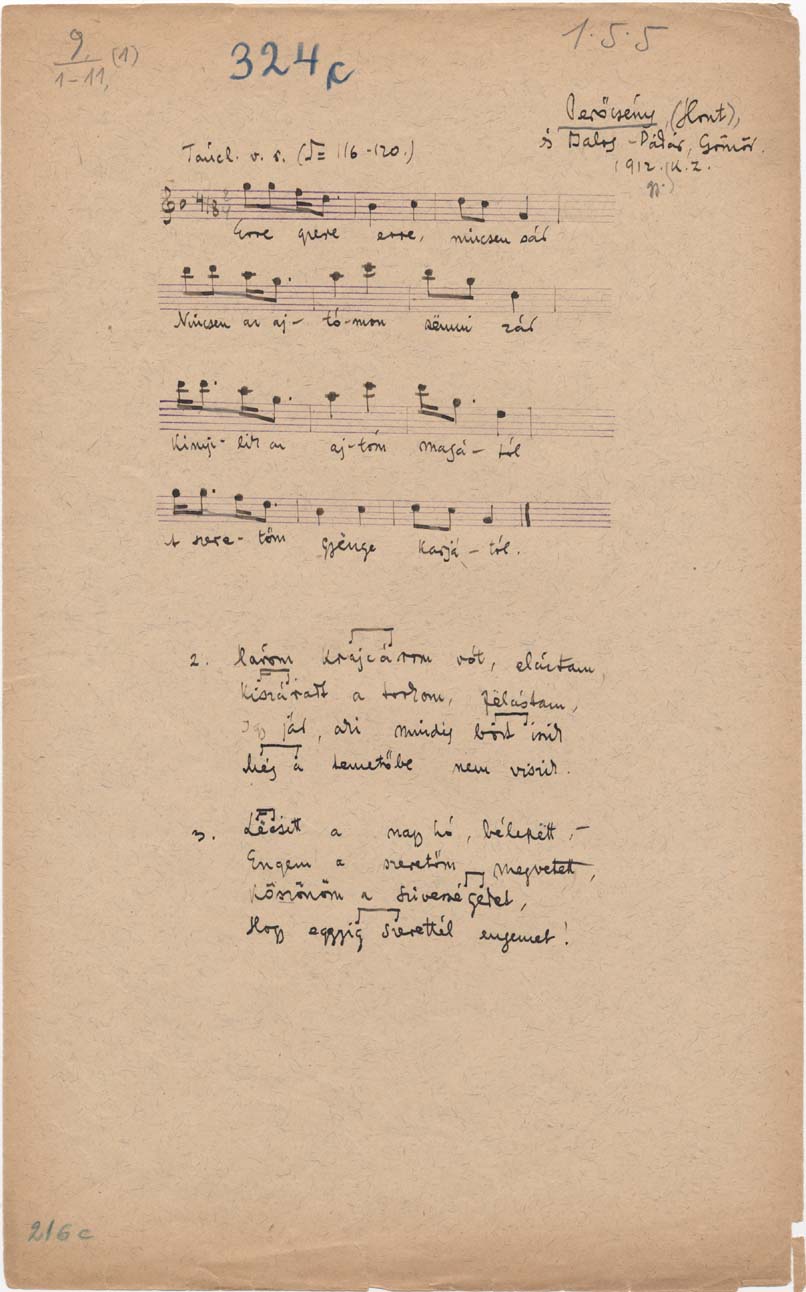 9.
1-11, (1)
324c
1.5.5
Perőcsény, (Hont),
és Balog-Pádár, Gömör.
1912. (K. Z.
gy.)
Táncl. v. s. (♩= 116-120.)
Erre gyere erre, nincsen sár
Nincsen az aj-tó-mon sëmmi zár
Kinyi-lik az aj-tóm magá-tól
A szere-tőm gyënge karjá-tól.
2. Három krajcárom vót, elástam,
Kiszáradt a torkom, felástam,
Így jár, aki mindig bort iszik
Míg a temetőbe nem viszik.
3. Lëësitt a nagy hó, bélepëtt,-
Engem a szeretőm megvetett,
Köszönöm a szivességedet,
Hogy eggyig szerettél engemet!
216c